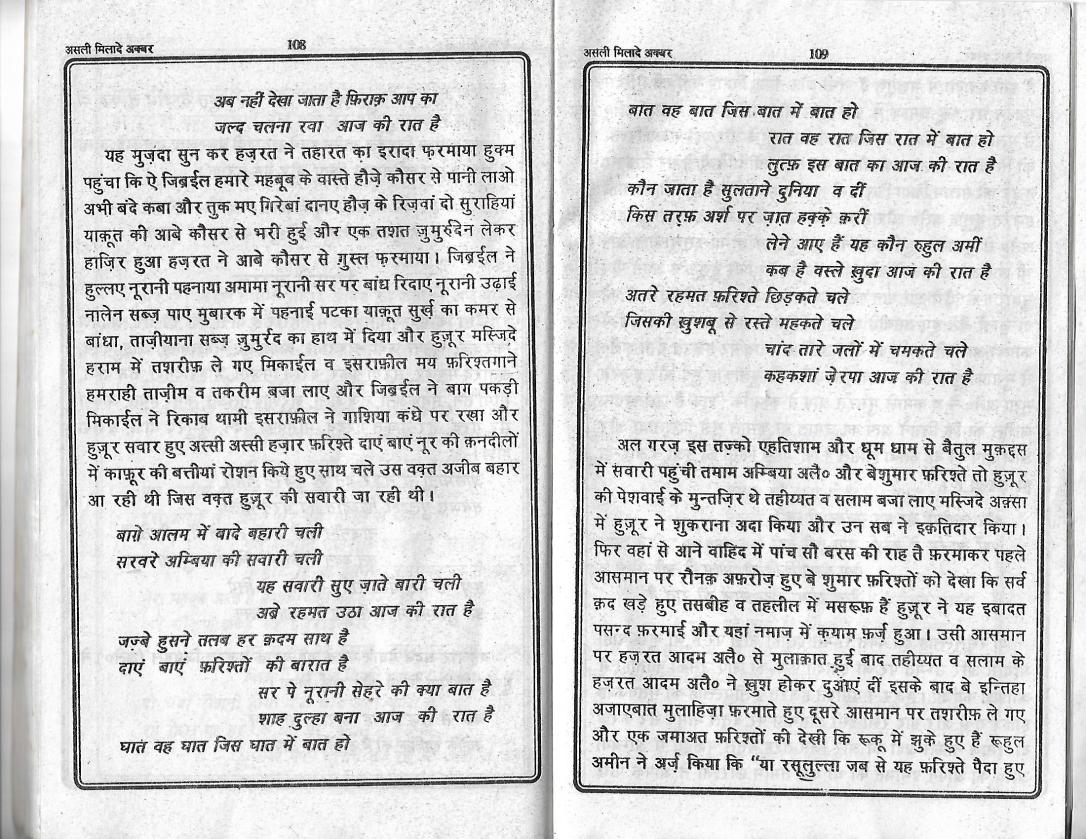 असली मिलादे अक्बर
108
अब नहीं देखा जाता है फ़िराक़ आप का
जल्द चलना रवा आज की रात है
यह मुज़दा सुन कर हज़रत ने तहारत का इरादा फ़रमाया हुक्म
पहुंचा कि ऐ जिब्रईल हमारे महबूब के वास्ते हौज़े कौसर से पानी लाओ
अभी बंदे कबा और तुक मए गिरेबां दानए हौज़ के रिज़वां दो सुराहियां
याक़ूत की आबे कौसर से भरी हुई और एक तशत ज़ुमुर्रुदैन लेकर
हाज़िर हुआ हज़रत ने आबे कौसर से ग़ुस्ल फ़रमाया। जिब्रईल ने
हुल्लए नूरानी पहनाया अमामा नूरानी सर पर बांध रिदाए नूरानी उढ़ाई
नालेन सब्ज़ पाए मुबारक में पहनाई पटका याक़ूत सुर्ख़ का कमर से
बांधा, ताज़ीयाना सब्ज़ ज़ुमुर्रद का हाथ में दिया और हुज़ूर मस्जिदे
हराम में तशरीफ़ ले गए मिकाईल व इसराफ़ील मय फ़रिश्तगाने
हमराही ताज़ीम व तकरीम बजा लाए और जिब्रईल ने बाग पकड़ी
मिकाईल ने रिकाब थामी इसराफ़ील ने गाशिया कंधे पर रखा और
हुज़ूर सवार हुए अस्सी अस्सी हज़ार फ़रिश्ते दाएं बाएं नूर की क़नदीलों
में काफ़ूर की बत्तीयां रोशन किये हुए साथ चले उस वक़्त अजीब बहार
आ रही थी जिस वक़्त हुज़ूर की सवारी जा रही थी।
बाग़े आलम में बादे बहारी चली
सरवरे अम्बिया की सवारी चली
यह सवारी सुए ज़ाते बारी चली
अब्रे रहमत उठा आज की रात है
जज़्बे हुसने तलब हर क़दम साथ है
दाएं बाएं फ़रिश्तों की बारात है
सर पे नूरानी सेहरे की क्या बात है
शाह दुल्हा बना आज की रात है
घात वह घात जिस घात में बात हो
असली मिलादे अक्बर
109
बात वह बात जिस बात में बात हो
रात वह रात जिस रात में बात हो
लुत्फ़ इस बात का आज की रात है
कौन जाता है सुलताने दुनिया व दीं
किस तरफ़ अर्श पर ज़ात हक़्क़े क़रीं
लेने आए हैं यह कौन रुहुल अमीं
कब है वस्ले ख़ुदा आज की रात है
अतरे रहमत फ़रिश्ते छिड़कते चले
जिसकी ख़ुशबू से रस्ते महकते चले
चांद तारे जलों में चमकते चले
कहकशां ज़ेरपा आज की रात है
अल गरज़ इस तज़्को एहतिशाम और धूम धाम से बैतुल मुक़द्दस
में सवारी पहुंची तमाम अम्बिया अलै० और बेशुमार फ़रिश्ते तो हुज़ूर
की पेशवाई के मुन्तज़िर थे तहीय्यत व सलाम बजा लाए मस्जिदे अक़्सा
में हुज़ूर ने शुकराना अदा किया और उन सब ने इक़तिदार किया।
फिर वहां से आने वाहिद में पांच सौ बरस की राह तै फ़रमाकर पहले
आसमान पर रौनक़ अफ़रोज़ हुए बे शुमार फ़रिश्तों को देखा कि सर्व
क़द खड़े हुए तसबीह व तहलील में मसरूफ़ हैं हुज़ूर ने यह इबादत
पसन्द फ़रमाई और यहां नमाज़ में क़याम फ़र्ज़ हुआ। उसी आसमान
पर हज़रत आदम अलै० से मुलाक़ात हुई बाद तहीय्यत व सलाम के
हज़रत आदम अलै० ने ख़ुश होकर दुआएं दीं इसके बाद बे इन्तिहा
अजाएबात मुलाहिज़ा फ़रमाते हुए दूसरे आसमान पर तशरीफ़ ले गए
और एक जमाअत फ़रिश्तों की देखी कि रूकू में झुके हुए हैं रूहुल
अमीन ने अर्ज़ किया कि “या रसूलुल्ला जब से यह फ़रिश्ते पैदा हुए